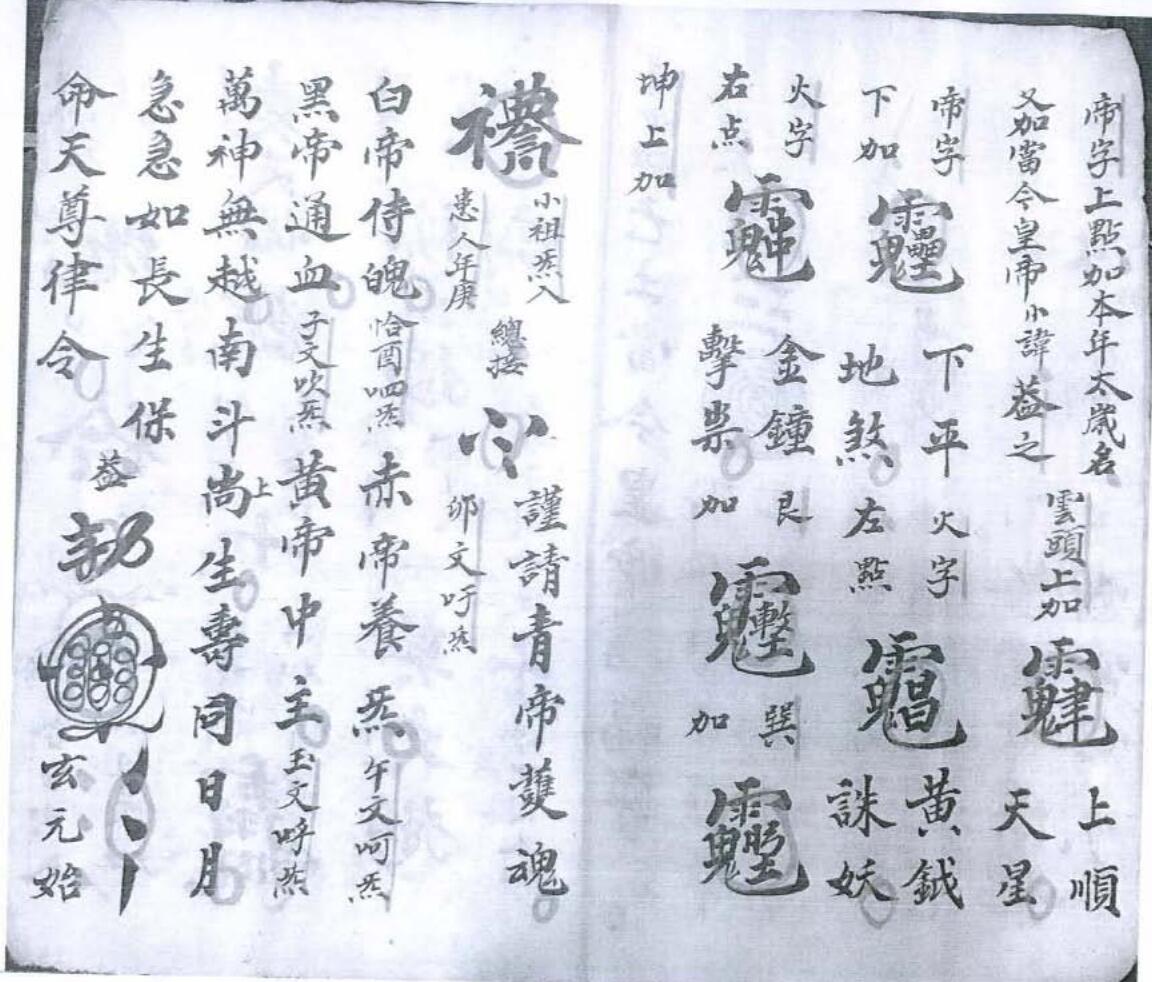 帝字上點加本年太歲名
又加當今皇帝小諱益之
雲頭上加
上順
天星
帝字
下加
下平
地煞
火字
左點
黃鉞
誅妖
火字
右点
金鐘
擊祟
艮
加
巽
加
坤上加
小祖炁入
患人年庚
總接
謹請青帝護魂
卯文吁炁
白帝侍魄
恰酉呬炁
赤帝養炁
午文呵炁
黑帝通血
子文吹炁
黃帝中主
玉文呼炁
萬神無越南斗尚上生壽同日月
急急如長生保
命天尊律令
益
玄元始